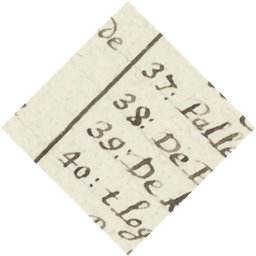 De
37: Palle
38: De
39: De
40: t log